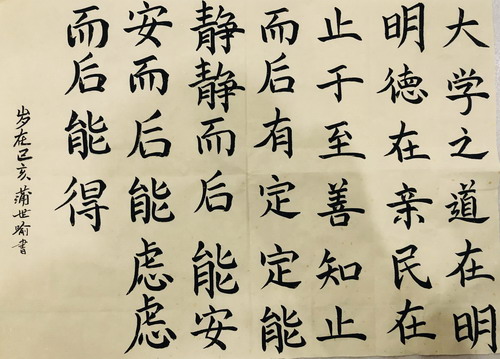 大学之道在明
明德在亲民在
止于至善知止
而后有定定能
静静而后能安
安而后能虑虑
而后能得
岁在己亥蒲世书